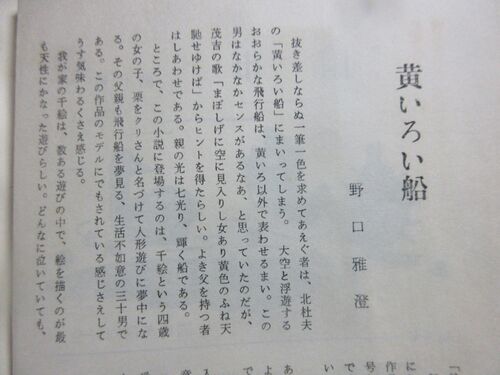 黄いろい船
野口雅澄
抜き差しならぬ一筆一色を求めてあえぐ者は、北杜夫
の「黄いろい船」にまいってしまう。大空と浮遊する
おおらかな飛行船は、黄いろ以外で表わせるまい。この
男はなかなかセンスがあるなあ、と思っていたのだが、
茂吉の歌「まぼしげに空に見入りし女あり黄色のふね天
馳せゆけば」からヒントを得たらしい。よき父を持つ者
はしあわせである。親の光は七光り、輝く船である。
ところで、この小説に登場するのは、千絵という四歳
の女の子、栗をクリさんと名づけて人形遊びに夢中にな
る。その父親も飛行船を夢見る、生活不如意の三十男で
ある。この作品のモデルにでもされている感じさえして
うす気味わるくさえ感じる。
我が家の千絵は、数ある遊びの中で、絵を描くのが最
も天性にかなった遊びらしい。どんなに泣いていても、